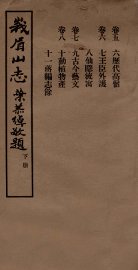 卷五 六歷代高僧
卷六 七王臣外護
八仙隱流寓
卷七 九古今藝文
卷八 十動植物產
十一蔣編志餘
峩眉山志 葉恭綽敬題
下冊